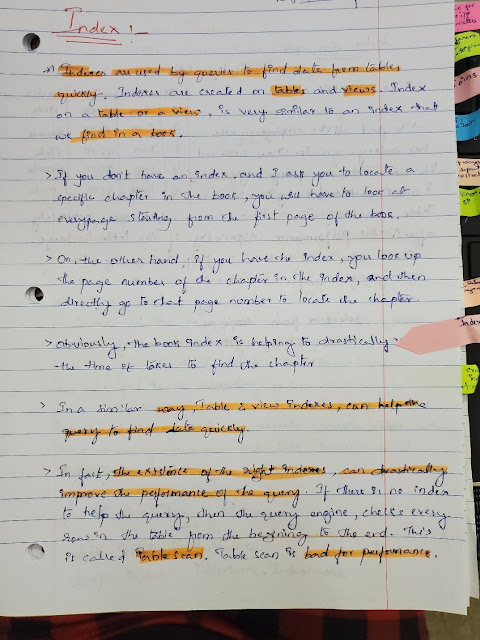 Index :-
*) Indexes are used by queries to find data from tables
quickly. Indexes are created on tables and views. Index
on a table or a view, is very similar to an index that
we find in a book.
> If you don't have an index, and I ask you to locate a
specific chapter in the book, you will have to look at
everypage starting from the first page of the book.
> On, the other hand, if you have the index, you look up
the page number of the chapter in the index, and then
directly go to that page number to locate the chapter.
> Obviously, the book index is helping to drastically
the time it takes to find the chapter
> In a similar way, Table & view indexes, can help the
query to find data quickly.
> In fact, the existence of the right indexes, can drastically
improve the peformance of the query. If there is no index
to help the query, then the query engine, checks every
row in the table from the beginning to the end. This
is called Table scan. Table scan is bad for performance.
Index